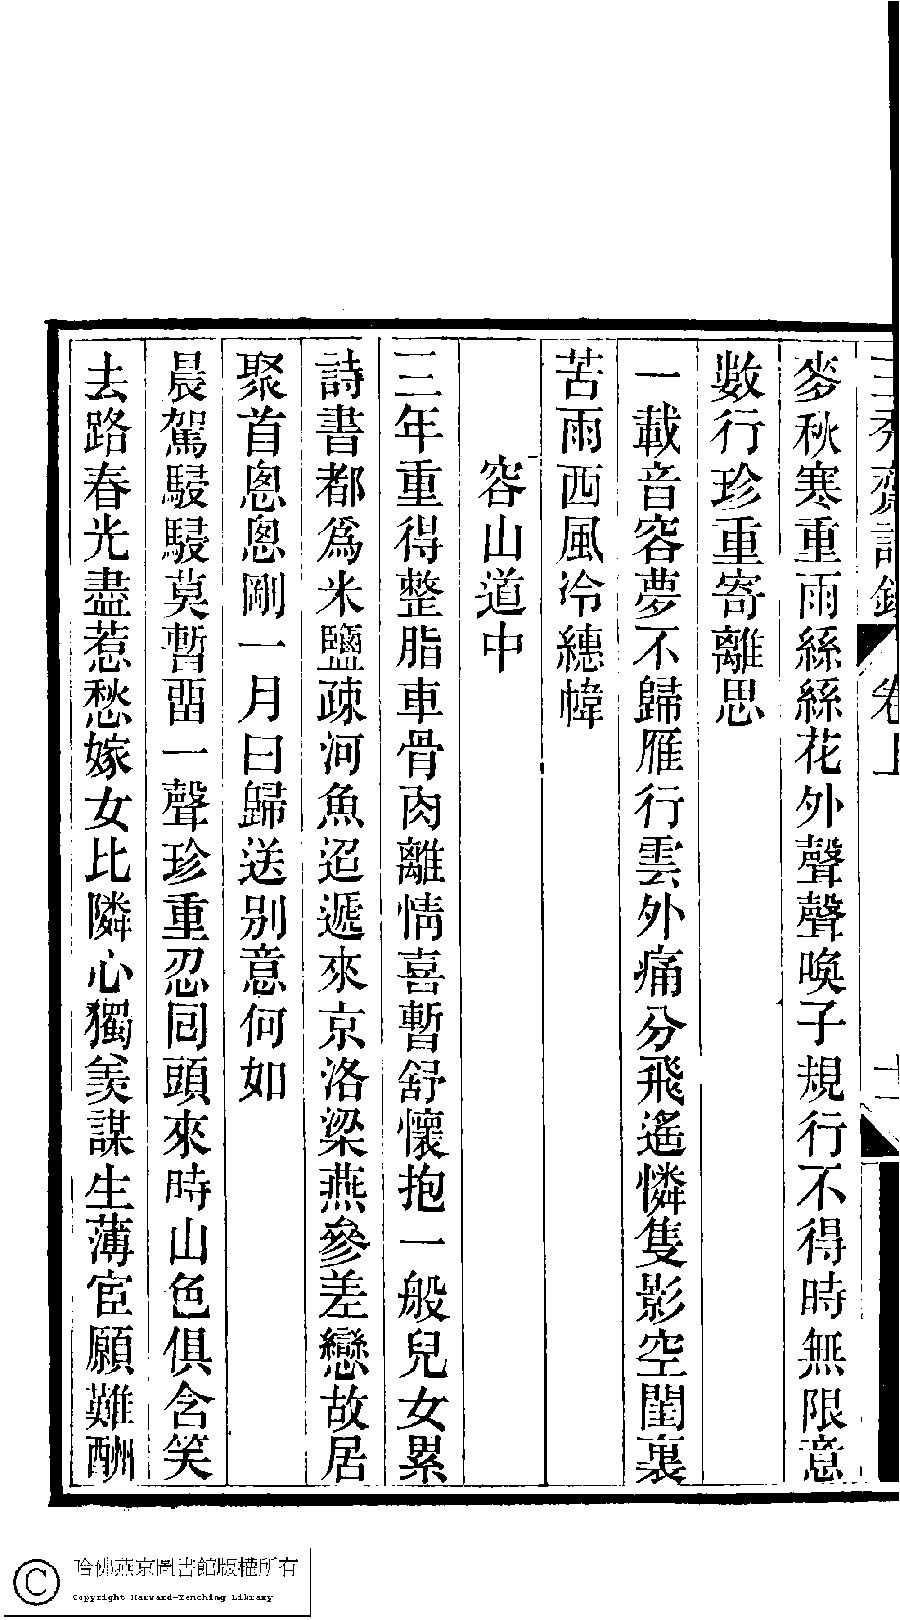 三秀齋詩鈔　卷上
麥秋寒重雨絲絲花外聲聲喚子規行不得時無限意
數行珍重寄離思
一載音容夢不歸雁行雲外痛分飛遙憐隻影空閨裏
苦雨西風冷繐幃
容山道中
三年重得整脂車骨肉離情喜暫舒懷抱一般兒女累
詩書都爲米鹽疎河魚迢遞來京洛梁燕參差戀故居
聚首悤悤剛一月曰歸送别意何如
晨駕駸駸莫暫畱一聲珍重忍囘頭來時山色俱含笑
去路春光盡惹愁嫁女比隣心獨羨謀生薄宦願難酬
哈佛燕京圖書館版權所有
Copyright Harvard-Yenching Library